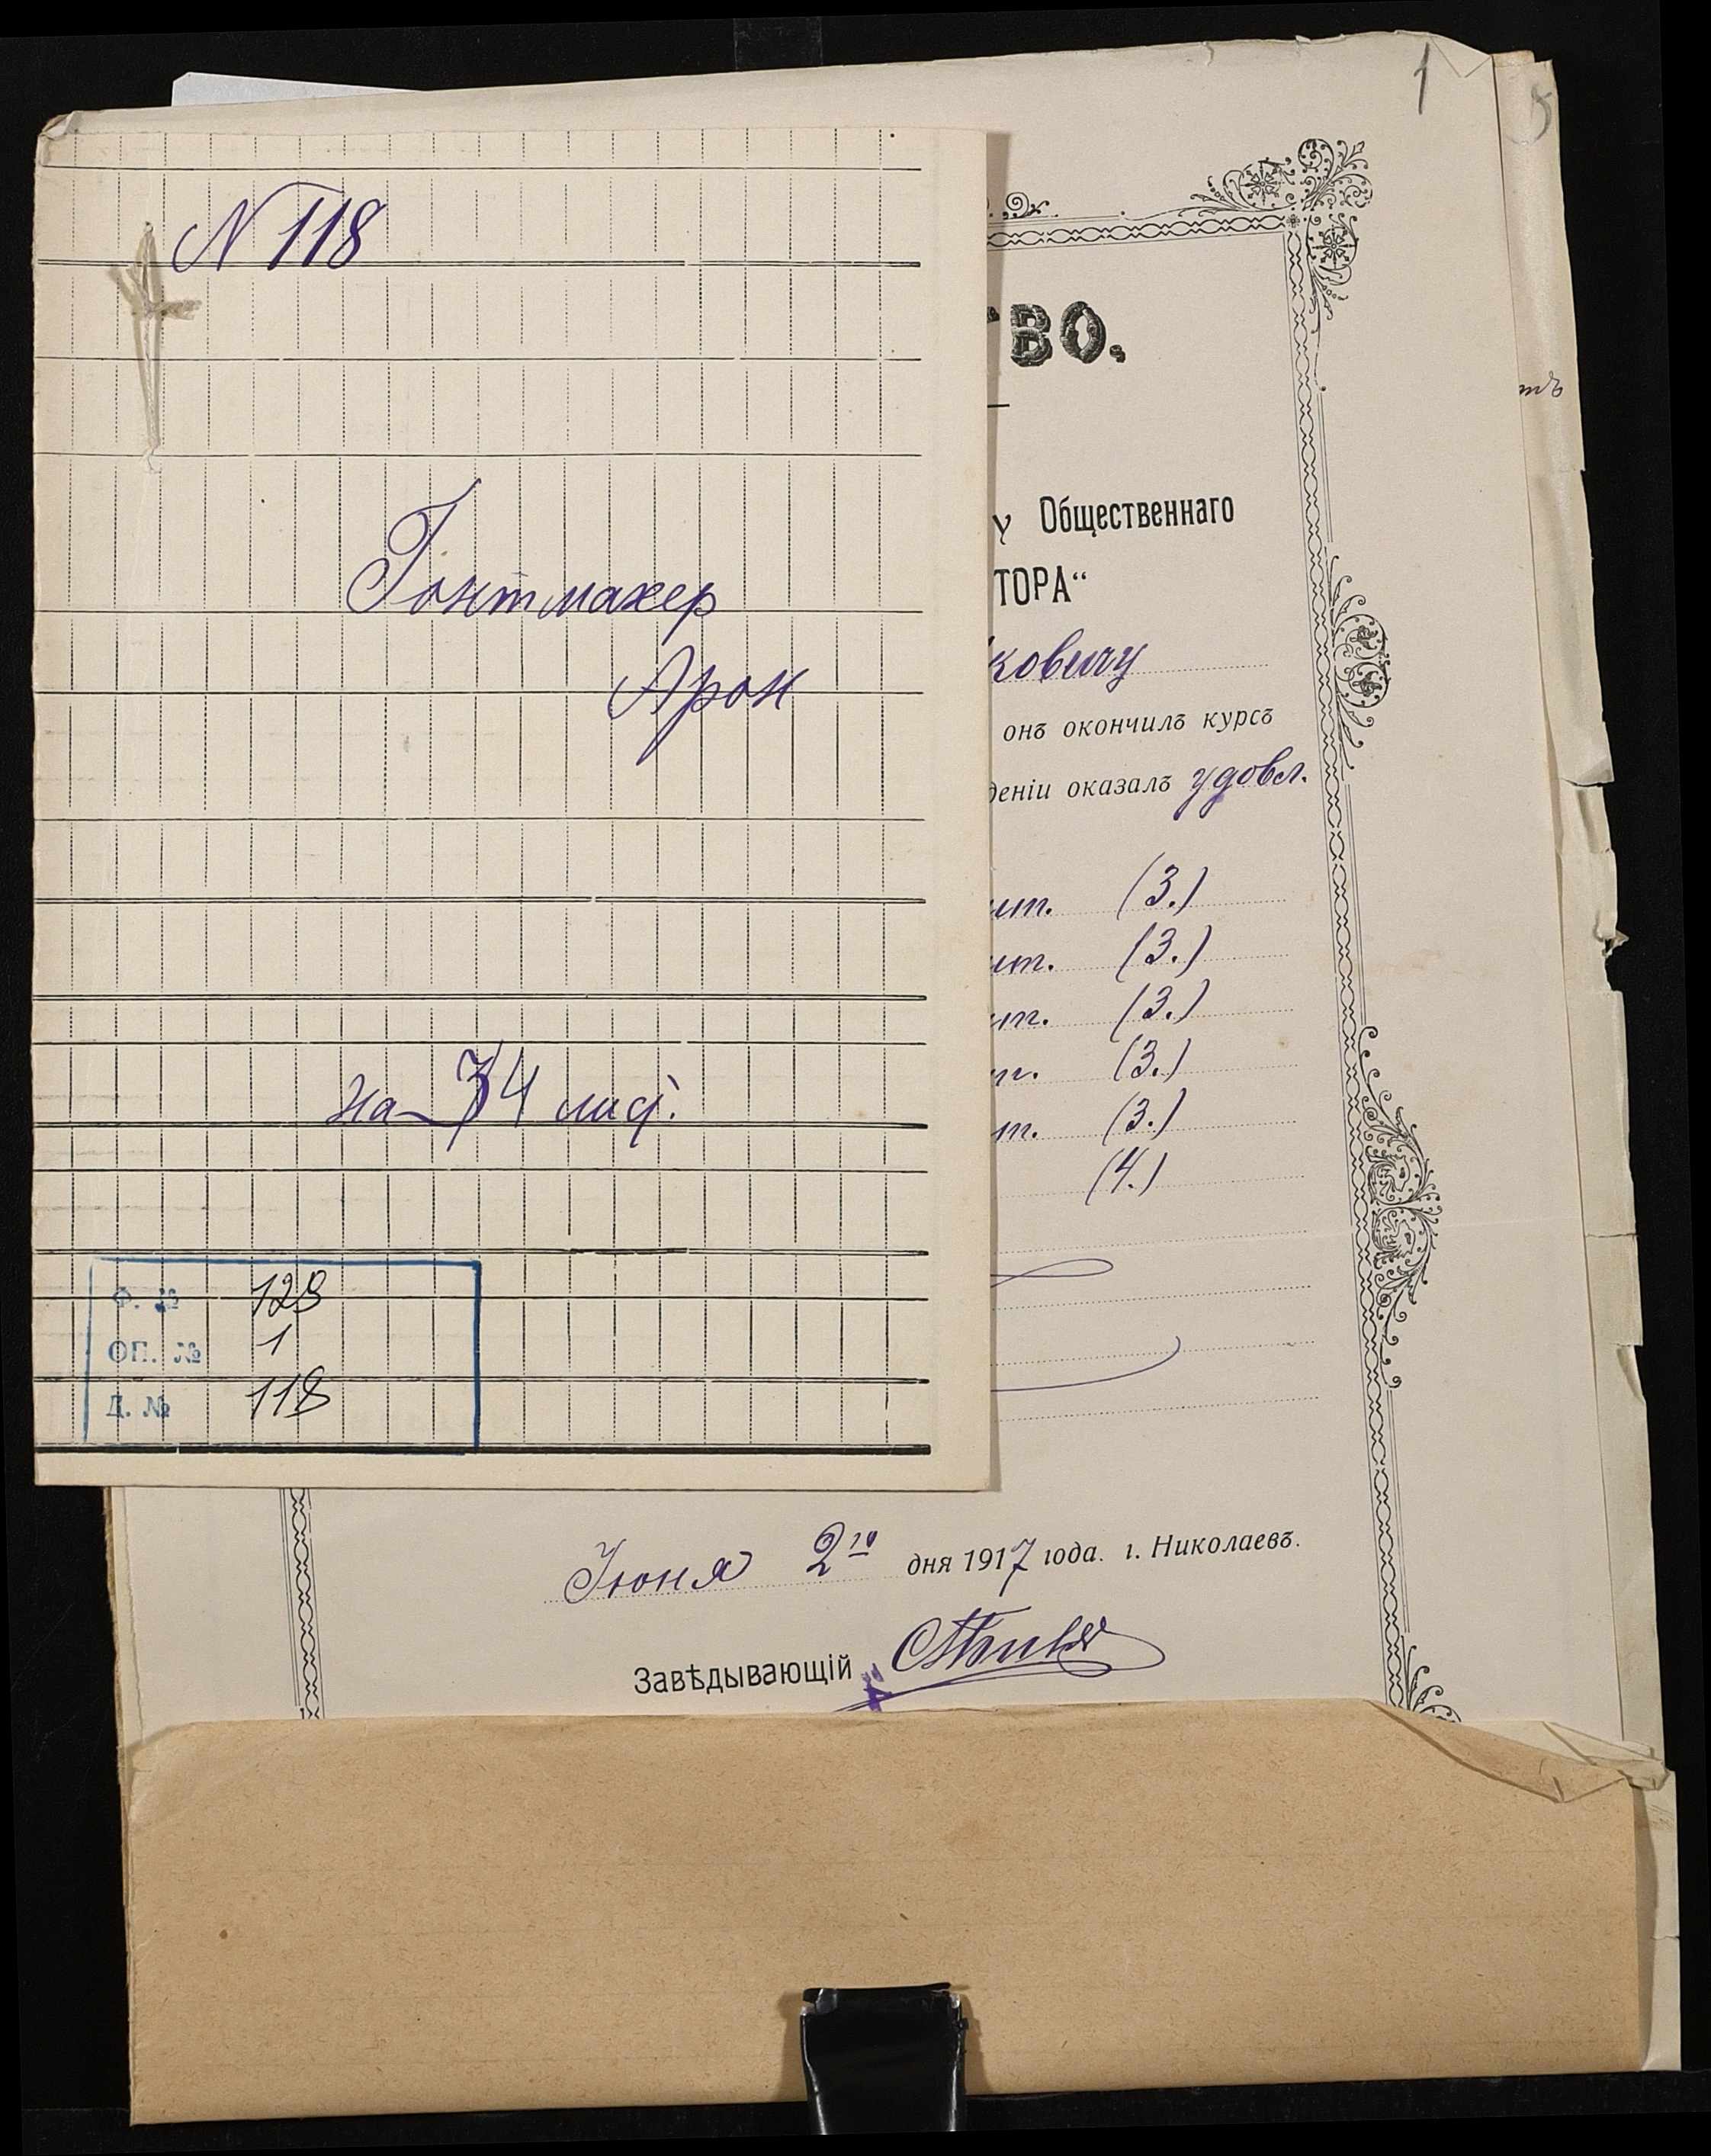 N 118
Гонтмахер
Арон
на 34 лис.
Ф. № 128
ОП. № 1
Д. № 118
1
ВО.
у Общественнаго
ТОРА“
ковичу
онъ окончилъ курсъ
деніи оказалъ удовл.
ит. (3.)
ит. (3.)
ит. (3.)
т. (3.)
т. (3.)
(4.)
Іюня 2го дня 1917 года. г. Николаевъ.
Завѣдывающій